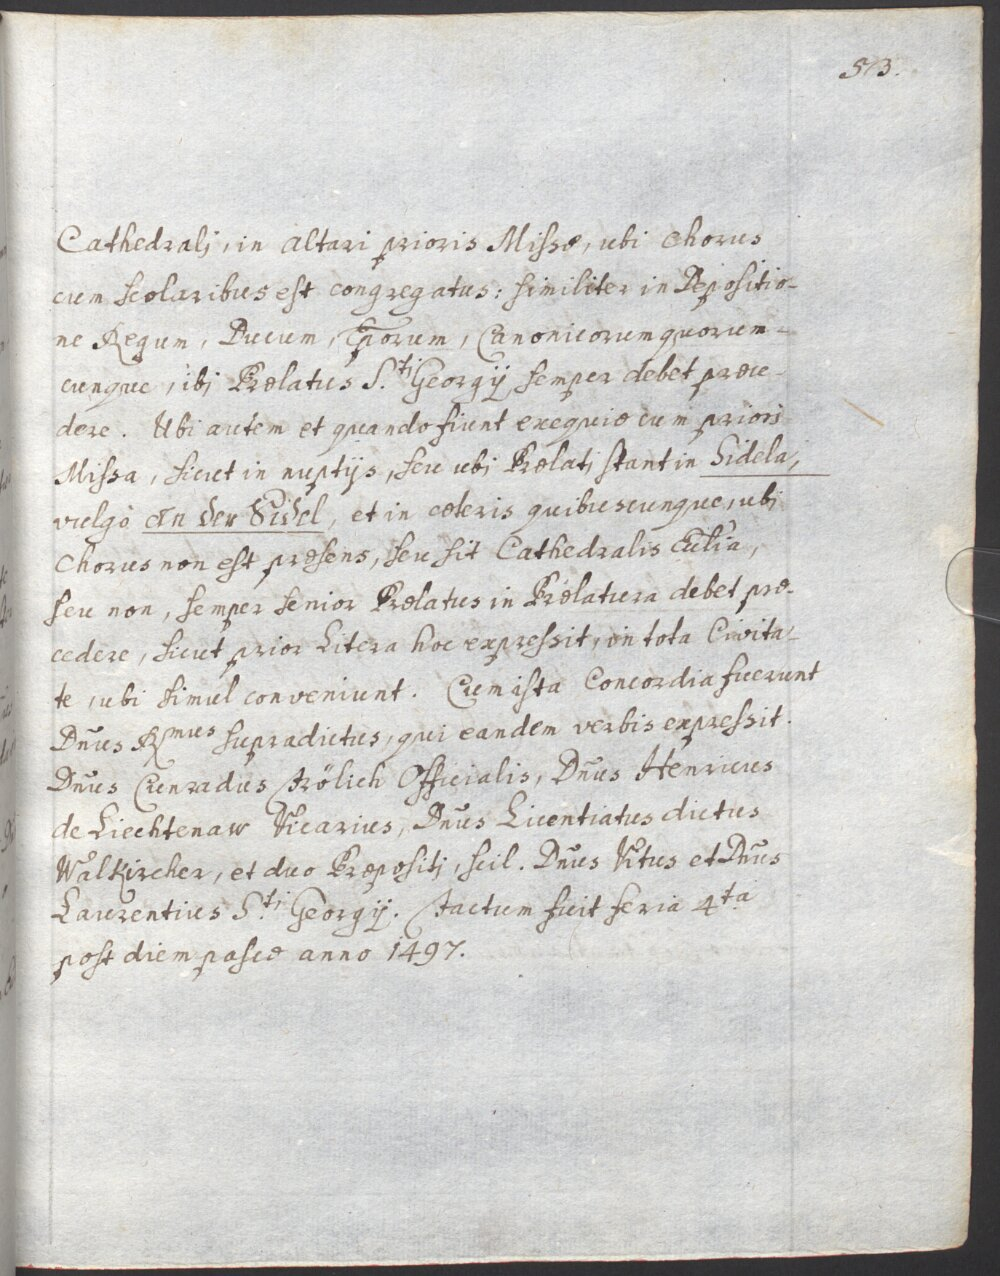 513.
Cathedralj, in altari prioris Missæ, ubi chorus
cum scolaribus est congregatus: similiter in Depositio-
ne Regum, Ducum, Eporum, Canonicorum quorum-
cunque, ibj Prælatus S.tj Georgÿ semper debet præce-
dere. Ubi autem et quando fiunt exequiæ cum priorj
Missa, sicut in nuptÿs, seu ubj Prælatj stant in Sidela,
vulgò An der Sidel, et in cæteris quibuscunque, ubj
Chorus non est præsens, seu sit Cathedralis Ecclia,
seu non, semper senior Prælatus in Prælatura debet præ-
cedere, sicut prior Litera hoc expressit, in tota Civita-
te, ubi simul conveniunt. Cum ista Concordia fuerunt
Dñus Rmus supradictus, qui eandem verbis expressit.
Dñus Cunradus Frölich Officialis, Dñus Henricus
de Liechtenaw Vicarius, Dñus Licentiatus dictus
Walkircher, et duo Præpositj, scil. Dñus Vitus et Dñus
Laurentius S.tj Georgÿ. Factum fuit feria 4ta
post diem pascæ anno 1497.